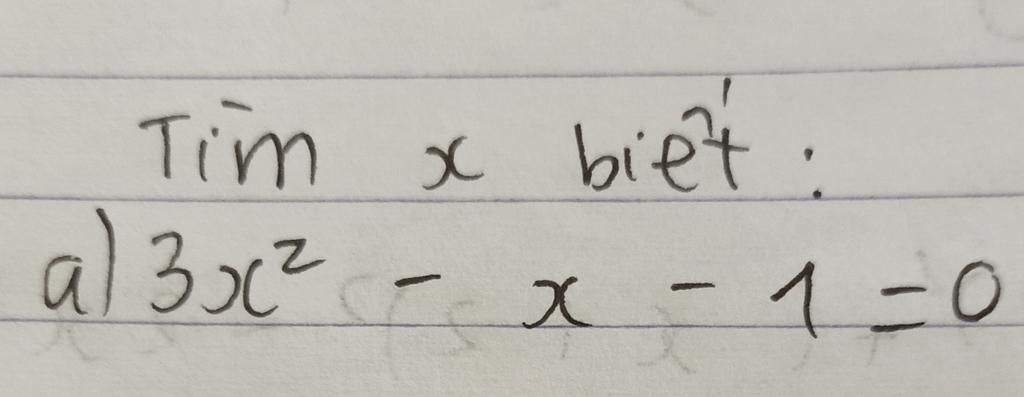 Tìm x biết :
a) 3x² - x - 1 = 0